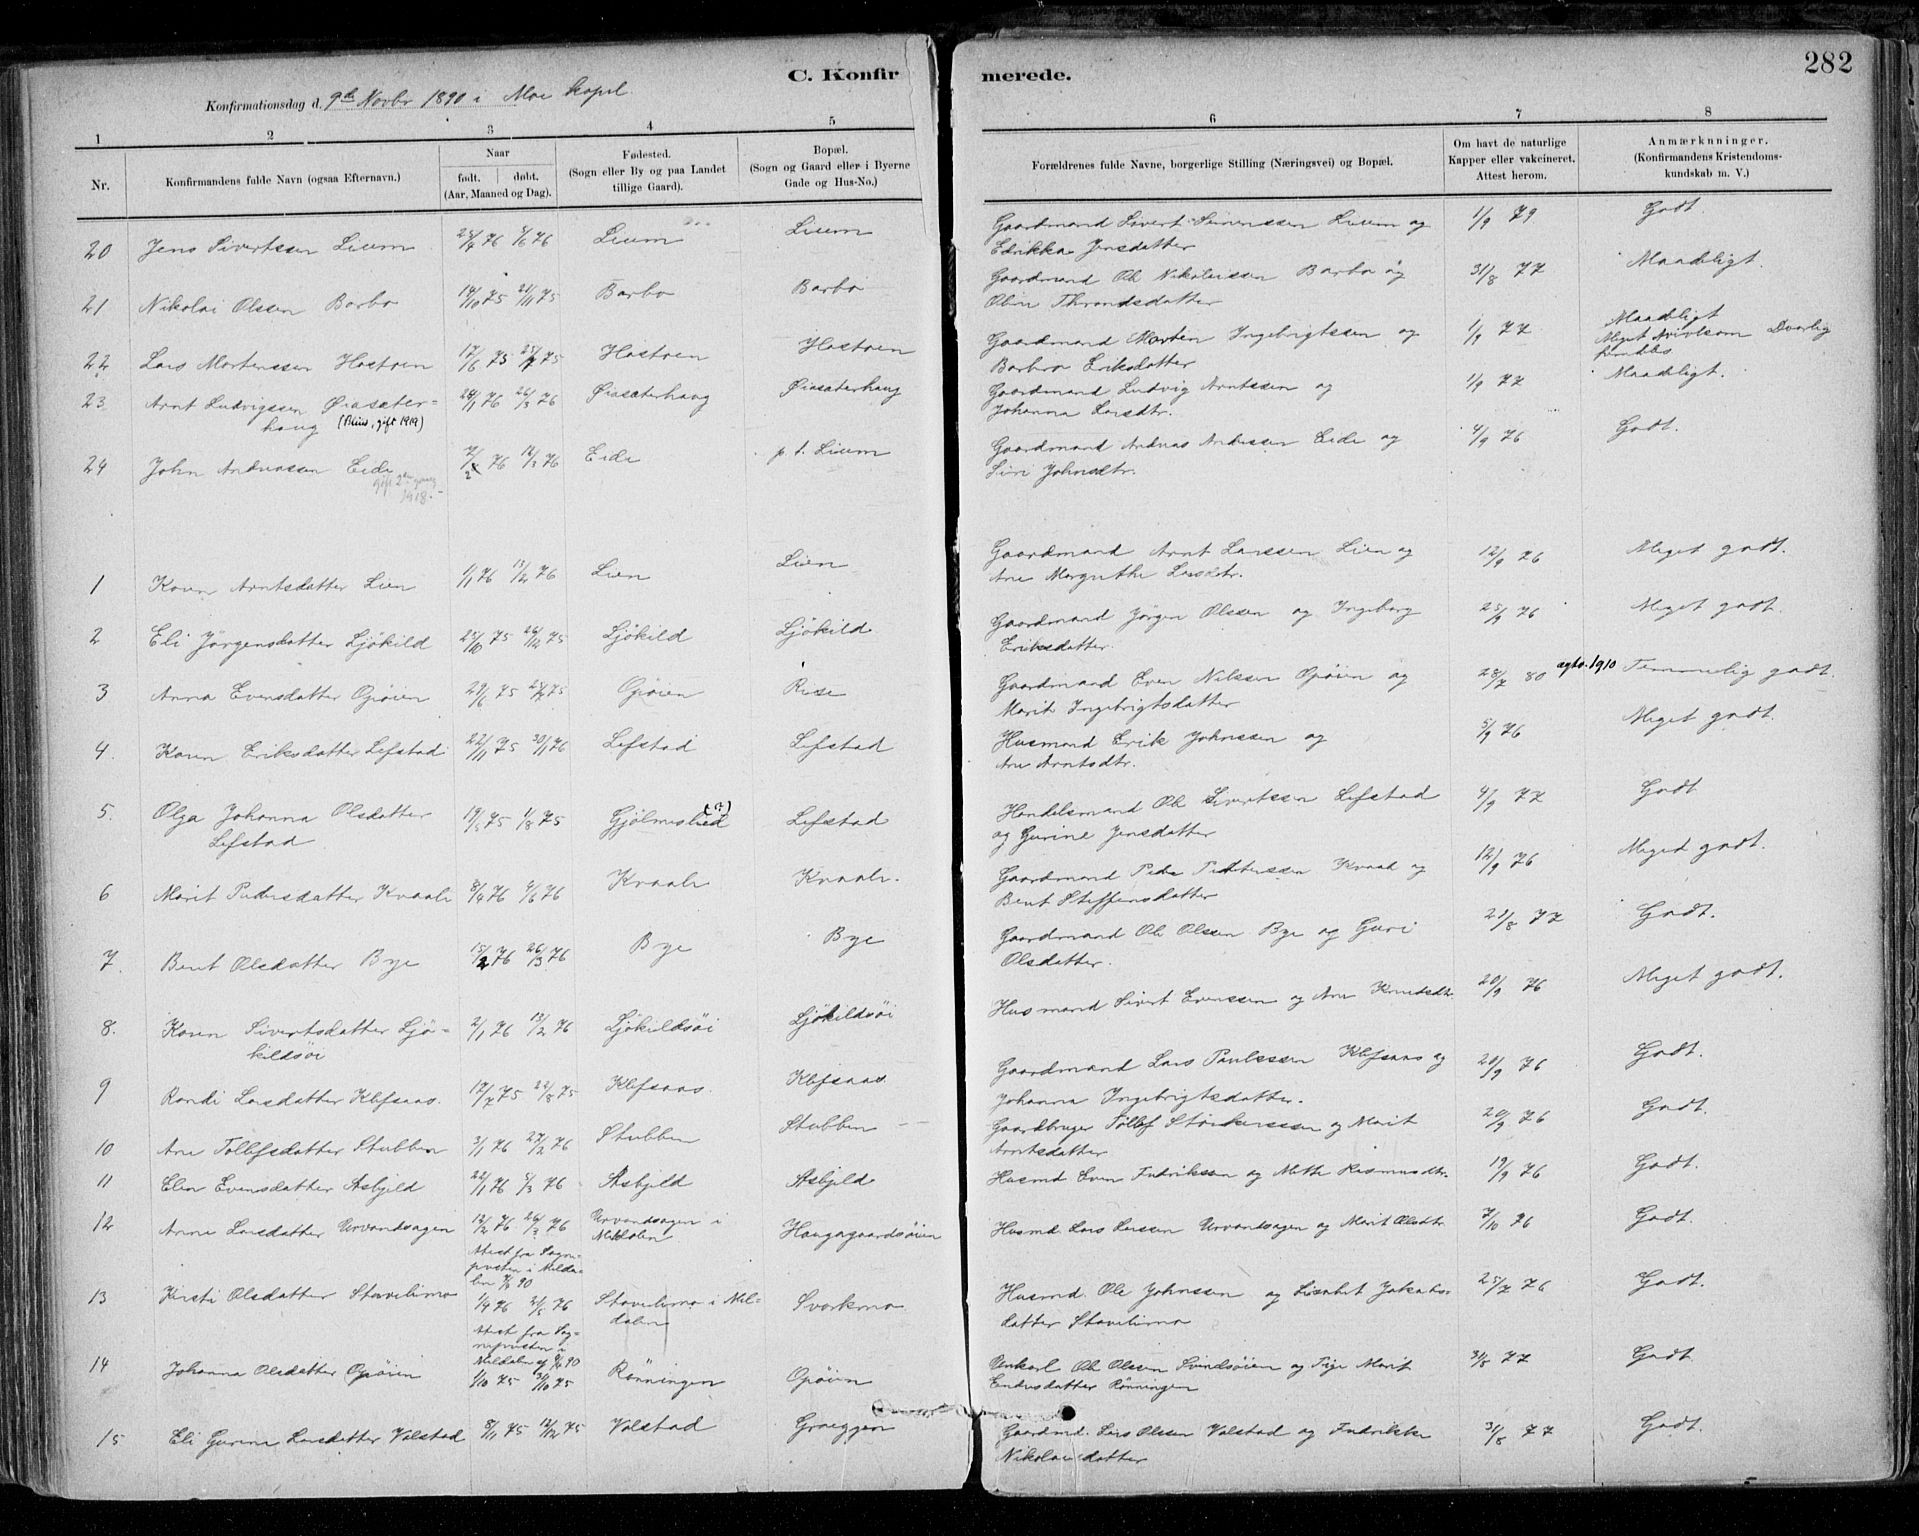 C. Konfirmerede. 282
Konfirmationsdag d. 9de Novbr 1890 i Moe kapel
1 2 3 4 5 6 7 8
Nr. Konfirmandens fulde Navn (ogsaa Efternavn.) Naar født. døbt. (Aar, Maaned og Dag). Fødested. (Sogn eller By og paa Landet tillige Gaard). Bopæl. (Sogn og Gaard eller i Byerne Gade og Hus-No.) Forældrenes fulde Navne, borgerlige Stilling (Næringsvei) og Bopæl. Om havt de naturlige Kapper eller vakcineret. Attest herom. Anmærkninger. (Konfirmandens Kristendomskundskab m. V.)
20 Jens Sivertssen Lium 25/4 76 5/6 76 Lium Lium Gaardmand Sivert Simenssen Lium og 1/9 79 Godt.
Erikka Jensdatter
21 Nikolai Olssen Barbo 14/10 75 21/11 75 Barbo Barbo Gaardmand Ole Nikolaissen Barbo og 31/8 77 Maadeligt.
Oline Throndsdatter
22 Lars Mortenssen Hostoen 17/6 75 25/7 75 Hostoen Hostoen Gaardmand Morten Ingebrigtssen og 1/9 77 Maadeligt
Barbro Eriksdatter Meget tvivlsom
23 Arnt Ludvigssen Øiasæter- 24/1 76 26/3 76 Øiasæterhaug Øiasæterhaug Gaardmand Ludvig Arntssen og 1/9 77 Maadeligt.
haug (gift 1919) Johanna Larsdtr.
24 John Andreassen Eide 2/2 76 12/3 76 Eide p. t. Lium Gaardmand Andreas Anderssen Eide og 4/9 76 Godt.
gift 2den gang 1918. Siri Johnsdtr.
1 Karen Arntsdatter Lien 1/1 76 13/2 76 Lien Lien Gaardmand Arnt Larssen Lien og 12/9 76 Meget godt.
Ane Margrethe Larsdtr.
2 Eli Jörgensdatter Ljökild 25/10 75 26/12 75 Ljökild Ljökild Gaardmand Jörgen Olssen og Ingeborg 25/9 76 Meget godt.
Eriksdatter
3 Anna Evensdatter Opöien 29/6 75 25/7 75 Opöien Rise Gaardmand Even Nilssen Opöien og 28/7 80 agto. 1910 Temmelig godt.
Marit Ingebrigtsdatter
4. Karen Eriksdatter Lefstad 22/11 75 30/1 76 Lefstad Lefstad Husmand Erik Johnssen og 5/9 76 Meget godt.
Ane Arntsdtr.
5. Olga Johanna Olsdatter 19/5 75 1/8 75 Gjölmeslied (?) Lefstad Handelsmand Ole Sivertssen Lefstad 4/9 77 Godt
Lefstad og Gurine Jensdatter
6 Marit Pedersdatter Kvaale 8/4 76 5/6 76 Kvaale Kvaale. Gaardmand Peder Pederssen Kvaale og 12/9 76 Meget godt.
Berit Steffensdatter
7. Berit Olsdatter Bye 15/2 76 26/3 76 Bye Bye Gaardmand Ole Olssen Bye og Guri 21/8 77 Godt.
Olsdatter.
8. Karen Sivertsdatter Ljö- 2/1 76 13/2 76 Ljökildsöi Ljökildsöi Husmand Sivert Evenssen og Ane Knudsdtr. 20/9 76 Meget godt.
kildsöi
9 Randi Larsdatter Klefsaas. 17/7 75 22/8 75 Klefsaas. Klefsaas Gaardmand Lars Paulssen Klefsaas og 20/9 76 Godt.
Johanna Ingebrigtsdatter.
10 Ane Tollefsdatter Stubben 3/1 76 27/2 76 Stubben Stubben Gaardbruger Tollef Størkerssen og Marit 20/9 76 Godt.
Arntsdatter
11 Elen Evensdatter Asbjeld 22/1 76 5/3 76 Asbjeld Asbjeld Husmd Even Fredrikssen og Mette Rasmusdtr. 19/9 76 Godt.
12 Anne Larsdatter Urvandsagen 12/2 76 26/3 76 Urvandsagen i Meldalen Haugagaardsöien Husmd. Lars Larssen Urvandsagen og Marit Olsdtr 7/10 76 Godt.
Attest fra Sogne-
presten i Melda-
len 90
13 Kirsti Olsdatter Stavelimo 1/4 76 21/5 76 Stavelimo i Mel- Svorkmo Husmd. Ole Johnssen og Lisabet Jakobs- 25/7 76 Godt.
dalen datter Stavelimo
Attest fra Sog-
nepresten i
Meldalen af 90
14 Johanna Olsdatter Opöien 1/10 75 31/10 75 Rönningen Opöien Unkarl Ole Olssen Svinelsöien og Pige Marit 31/8 77 Godt
Endresdatter Rönningen
15 Eli Gurina Larsdatter Volstad 8/11 75 12/12 75 Volstad Graeggen Gaardmd. Lars Olssen Volstad og Fredrikke 31/8 77 Godt.
Nikolaisdatter